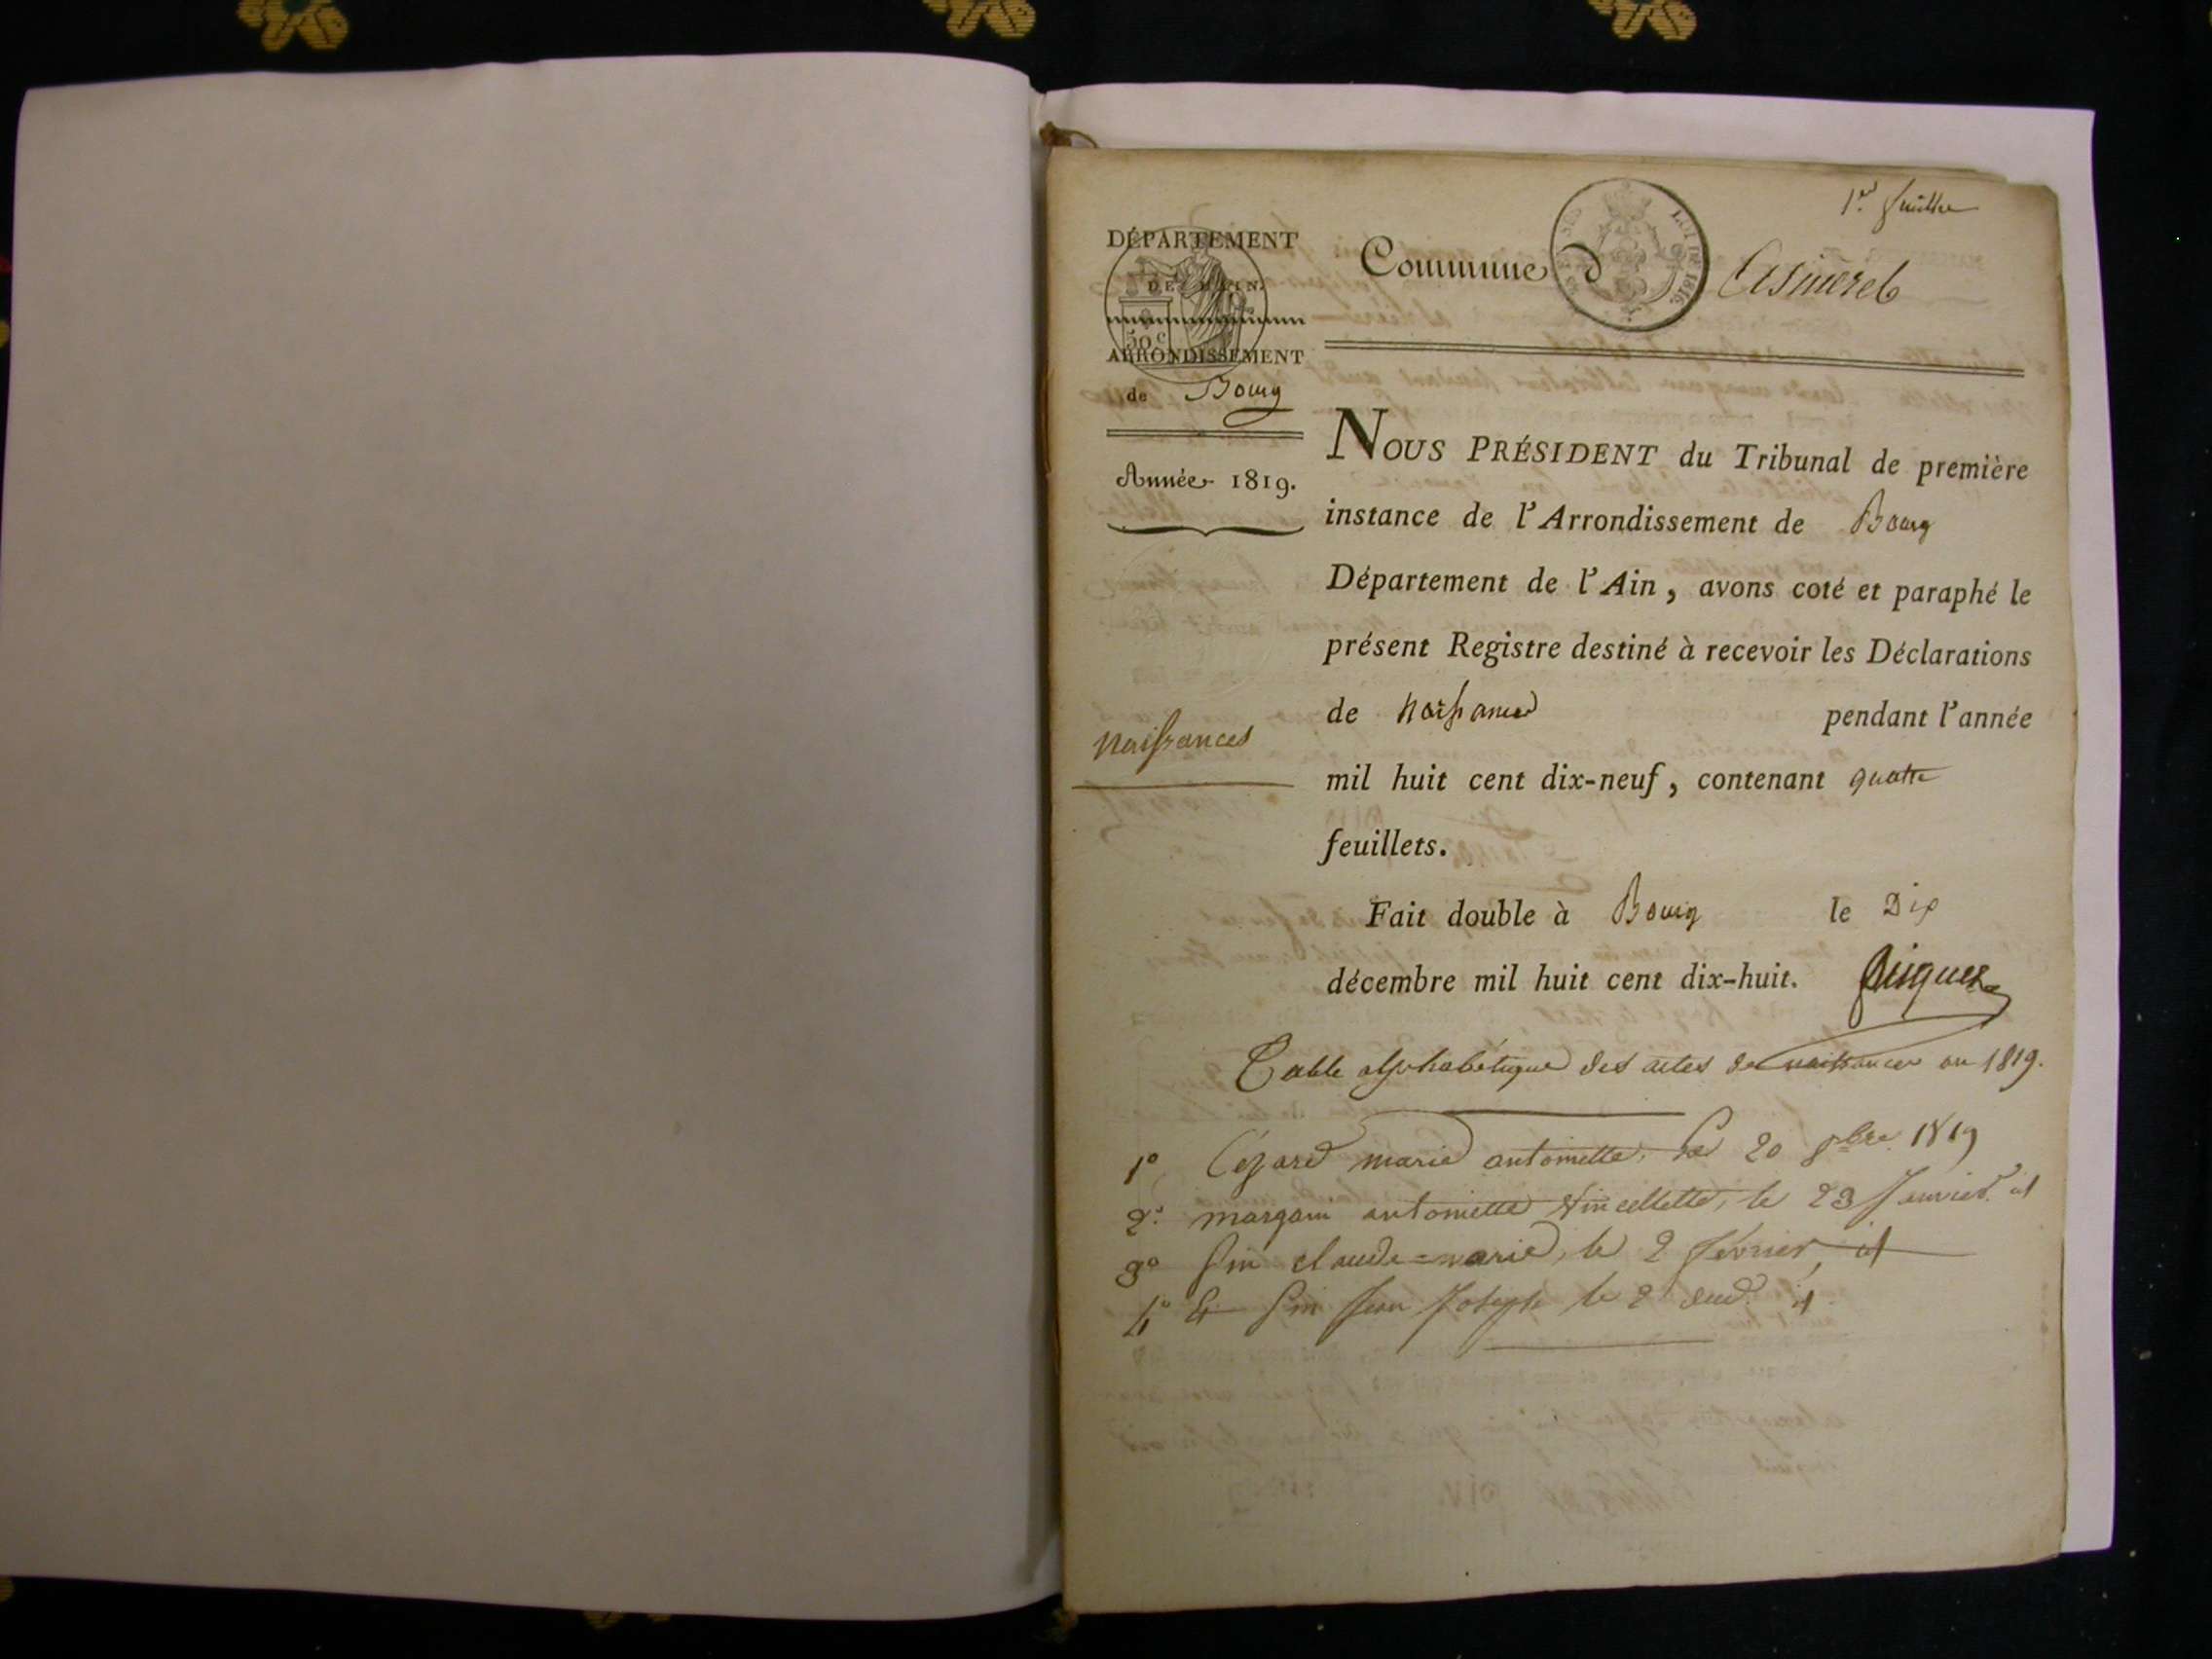 1er feuillet
DÉPARTEMENT
DE L'AIN.
50 c
ARRONDISSEMENT
de Bourg
Année 1819.
Commune d'Asnieres
LOI DE 1816.
NOUS PRÉSIDENT du Tribunal de première
instance de l'Arrondissement de Bourg
Département de l'Ain, avons coté et paraphé le
présent Registre destiné à recevoir les Déclarations
de naissances pendant l'année
naissances
mil huit cent dix-neuf, contenant quatre
feuillets.
Fait double à Bourg le Dix
décembre mil huit cent dix-huit.
Table alphabétique des actes de naissances an 1819.
1° marie antoinette, le 20 8bre 1819
2° margain antoinette Vincellette, le 23 Janvier id
3° Pin claude=marie, le 2 février, id
4° Pin Jean Joseph le 2 dud. id